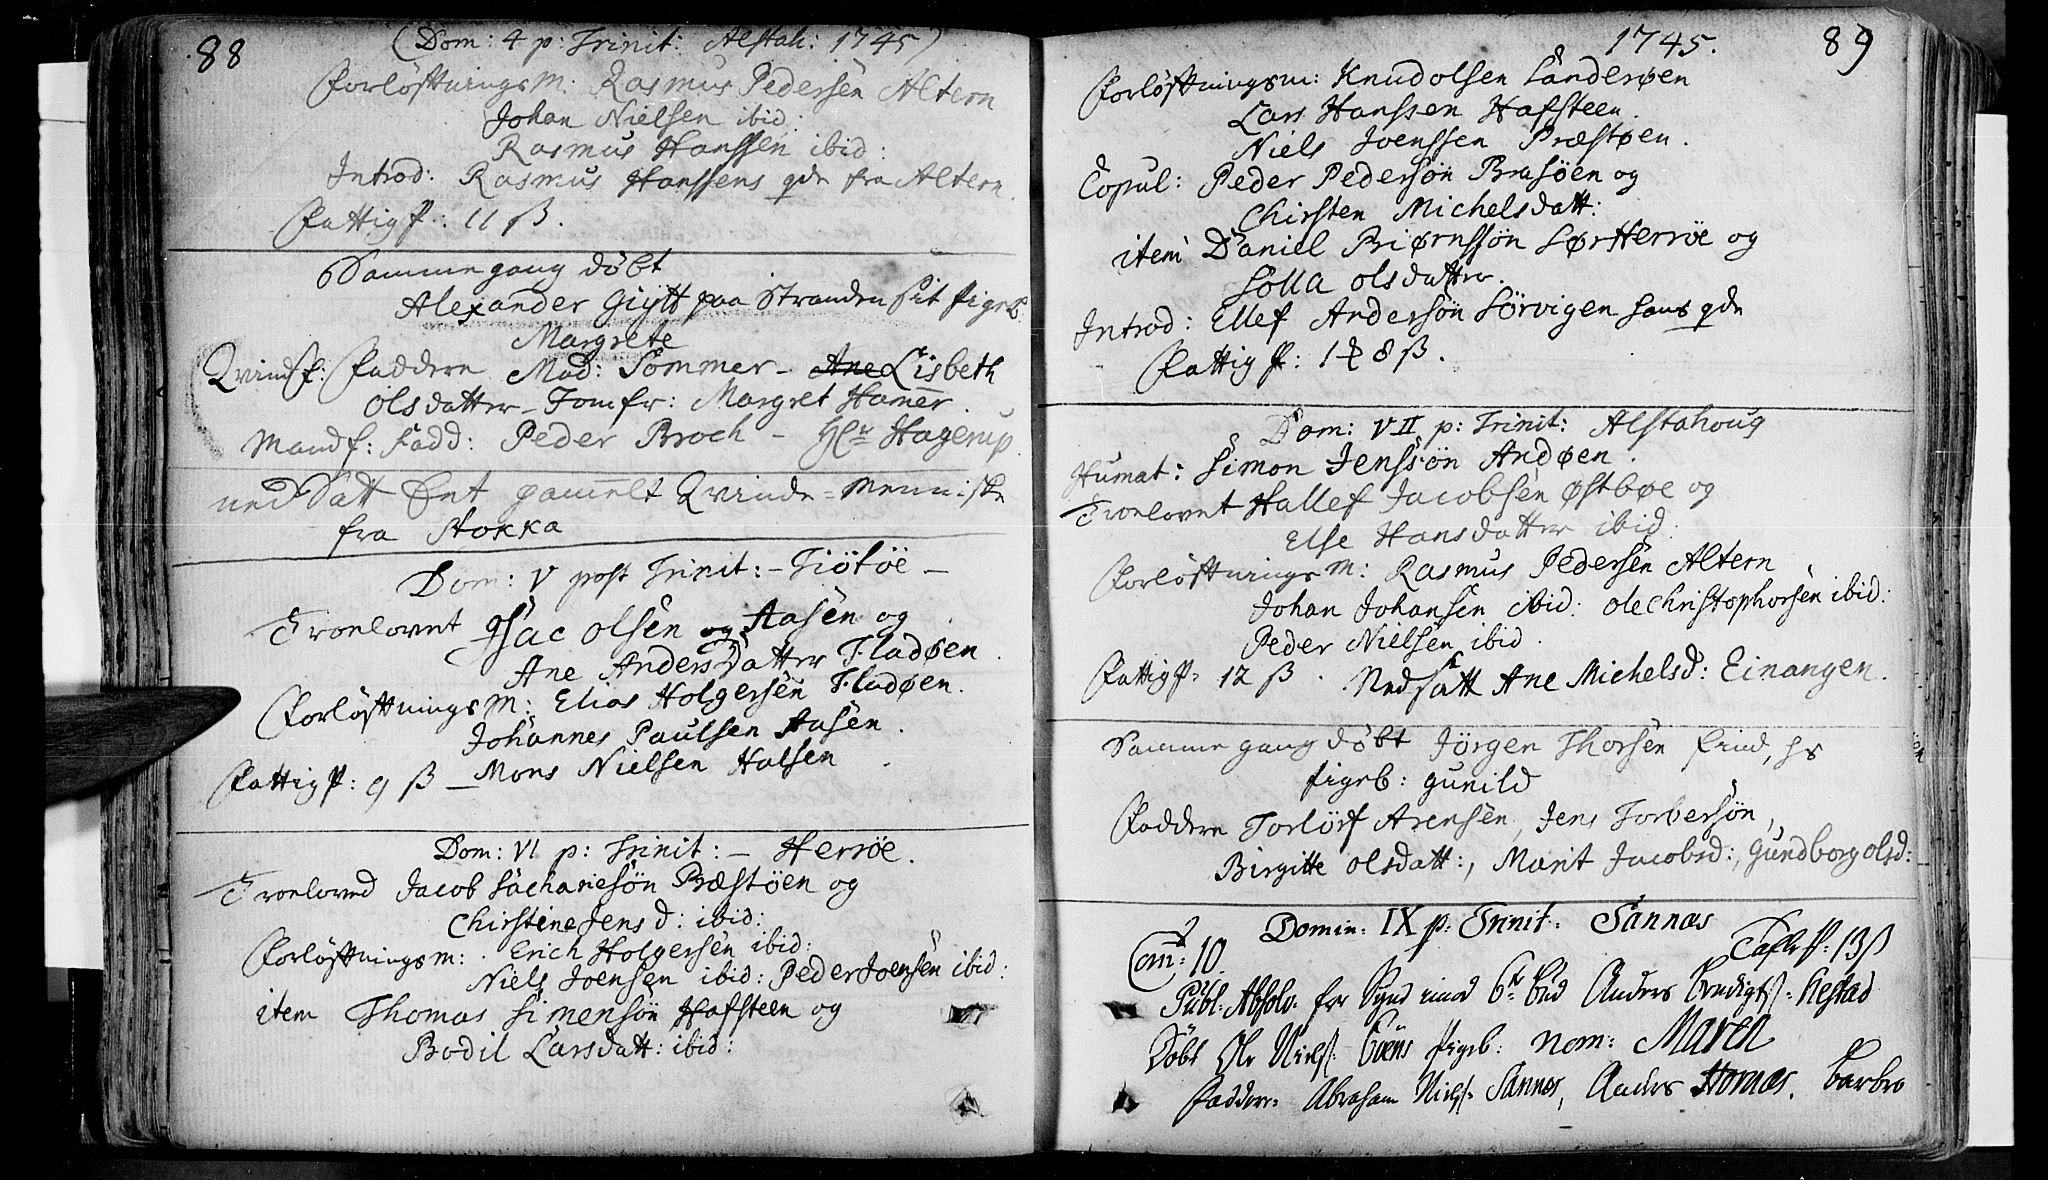 88
(Dom: 4 p: Trinit: Alstah: 1745)
Forløftningsm: Rasmus Pedersen Altern
Johan Nielsen ibid:
Rasmus Hanssen ibid:
Introd: Rasmus Hanssens qde fra Altern
Fattigp: 11 ß.
Samme gang døbt
Alexander Giytt paa Stranden sit pigeb
Margrete
Qvindf: Faddere Mad: Sommer - Ane Lisbeth
Olsdatter - Jomfr: Margret Hamer.
Mandf: Fadd: Peder Broch - Hr Hagerup.
nedsatt Et gamelt Qvinde=Menniske
fra Stokka
Dom: V post Trinit: - Tiötöe -
Troelovet Isac Olsen og Aasen og
Ane Andersdatter Fladøen.
Forløftningsm: Elias Holgersen Fladøen.
Johannes Paulsen Aasen.
Fattigp: 9 ß - Mons Nielsen Halsen
Dom: VI p: Trinit: - Herröe.
Troeloved Jacob Sachariesön Præstöen og
Chirstine Jensd: ibid:
Forløftningsm: Erich Holgersen ibid:
Niels Joensen ibid: Peder Joensen ibid:
item Thomas Simensön Hafsteen og
Bodil Larsdatt: ibid:
1745. 89
Forløftningsm: Knud Olsen Sanderøen
Lars Hanssen Hafsteen.
Niels Joenssen Præstøen.
Copul: Peder Pedersön Brasöen og
Chirsten Michelsdatt:
item Daniel Biørnssön Sør Herröe og
Solla Olsdatter.
Introd: Ellef Andersön Sörvigen hans qde
Fattigp: 1 8 ß.
Dom: VII p: Trinit: Alstahoug
Humat: Simon Jenssön Andøen.
Troelovet Hallef Jacobsen Østbøe og
Else Hansdatter ibid:
Forløftningsm: Rasmus Pedersen Altern
Johan Johansen ibid: Ole Christophersen ibid:
Peder Nielsen ibid.
Fattigp: 12 ß. Nedsatt Ane Michelsd: Einangen.
Samme gang døbt Jörgen Thorsen find, hs
pigeb: Gunild
Faddere Torlöf Arensen, Jens Torbersön,
Birgitte Olsdatt:, Marit Jacobsd:, Gundborg Olsd:
Domin: IX p: Trinit: Sannæs
Com: 10. Tafle p: 13 ß
Publ: Absolv. for Synd imod 6te bud Anders Bendigts: Nestad
Døbt Ole Niels: pigeb: Nom: Maren
Faddere: Abraham Niels: Sannæs, Anders Homæs, barbro